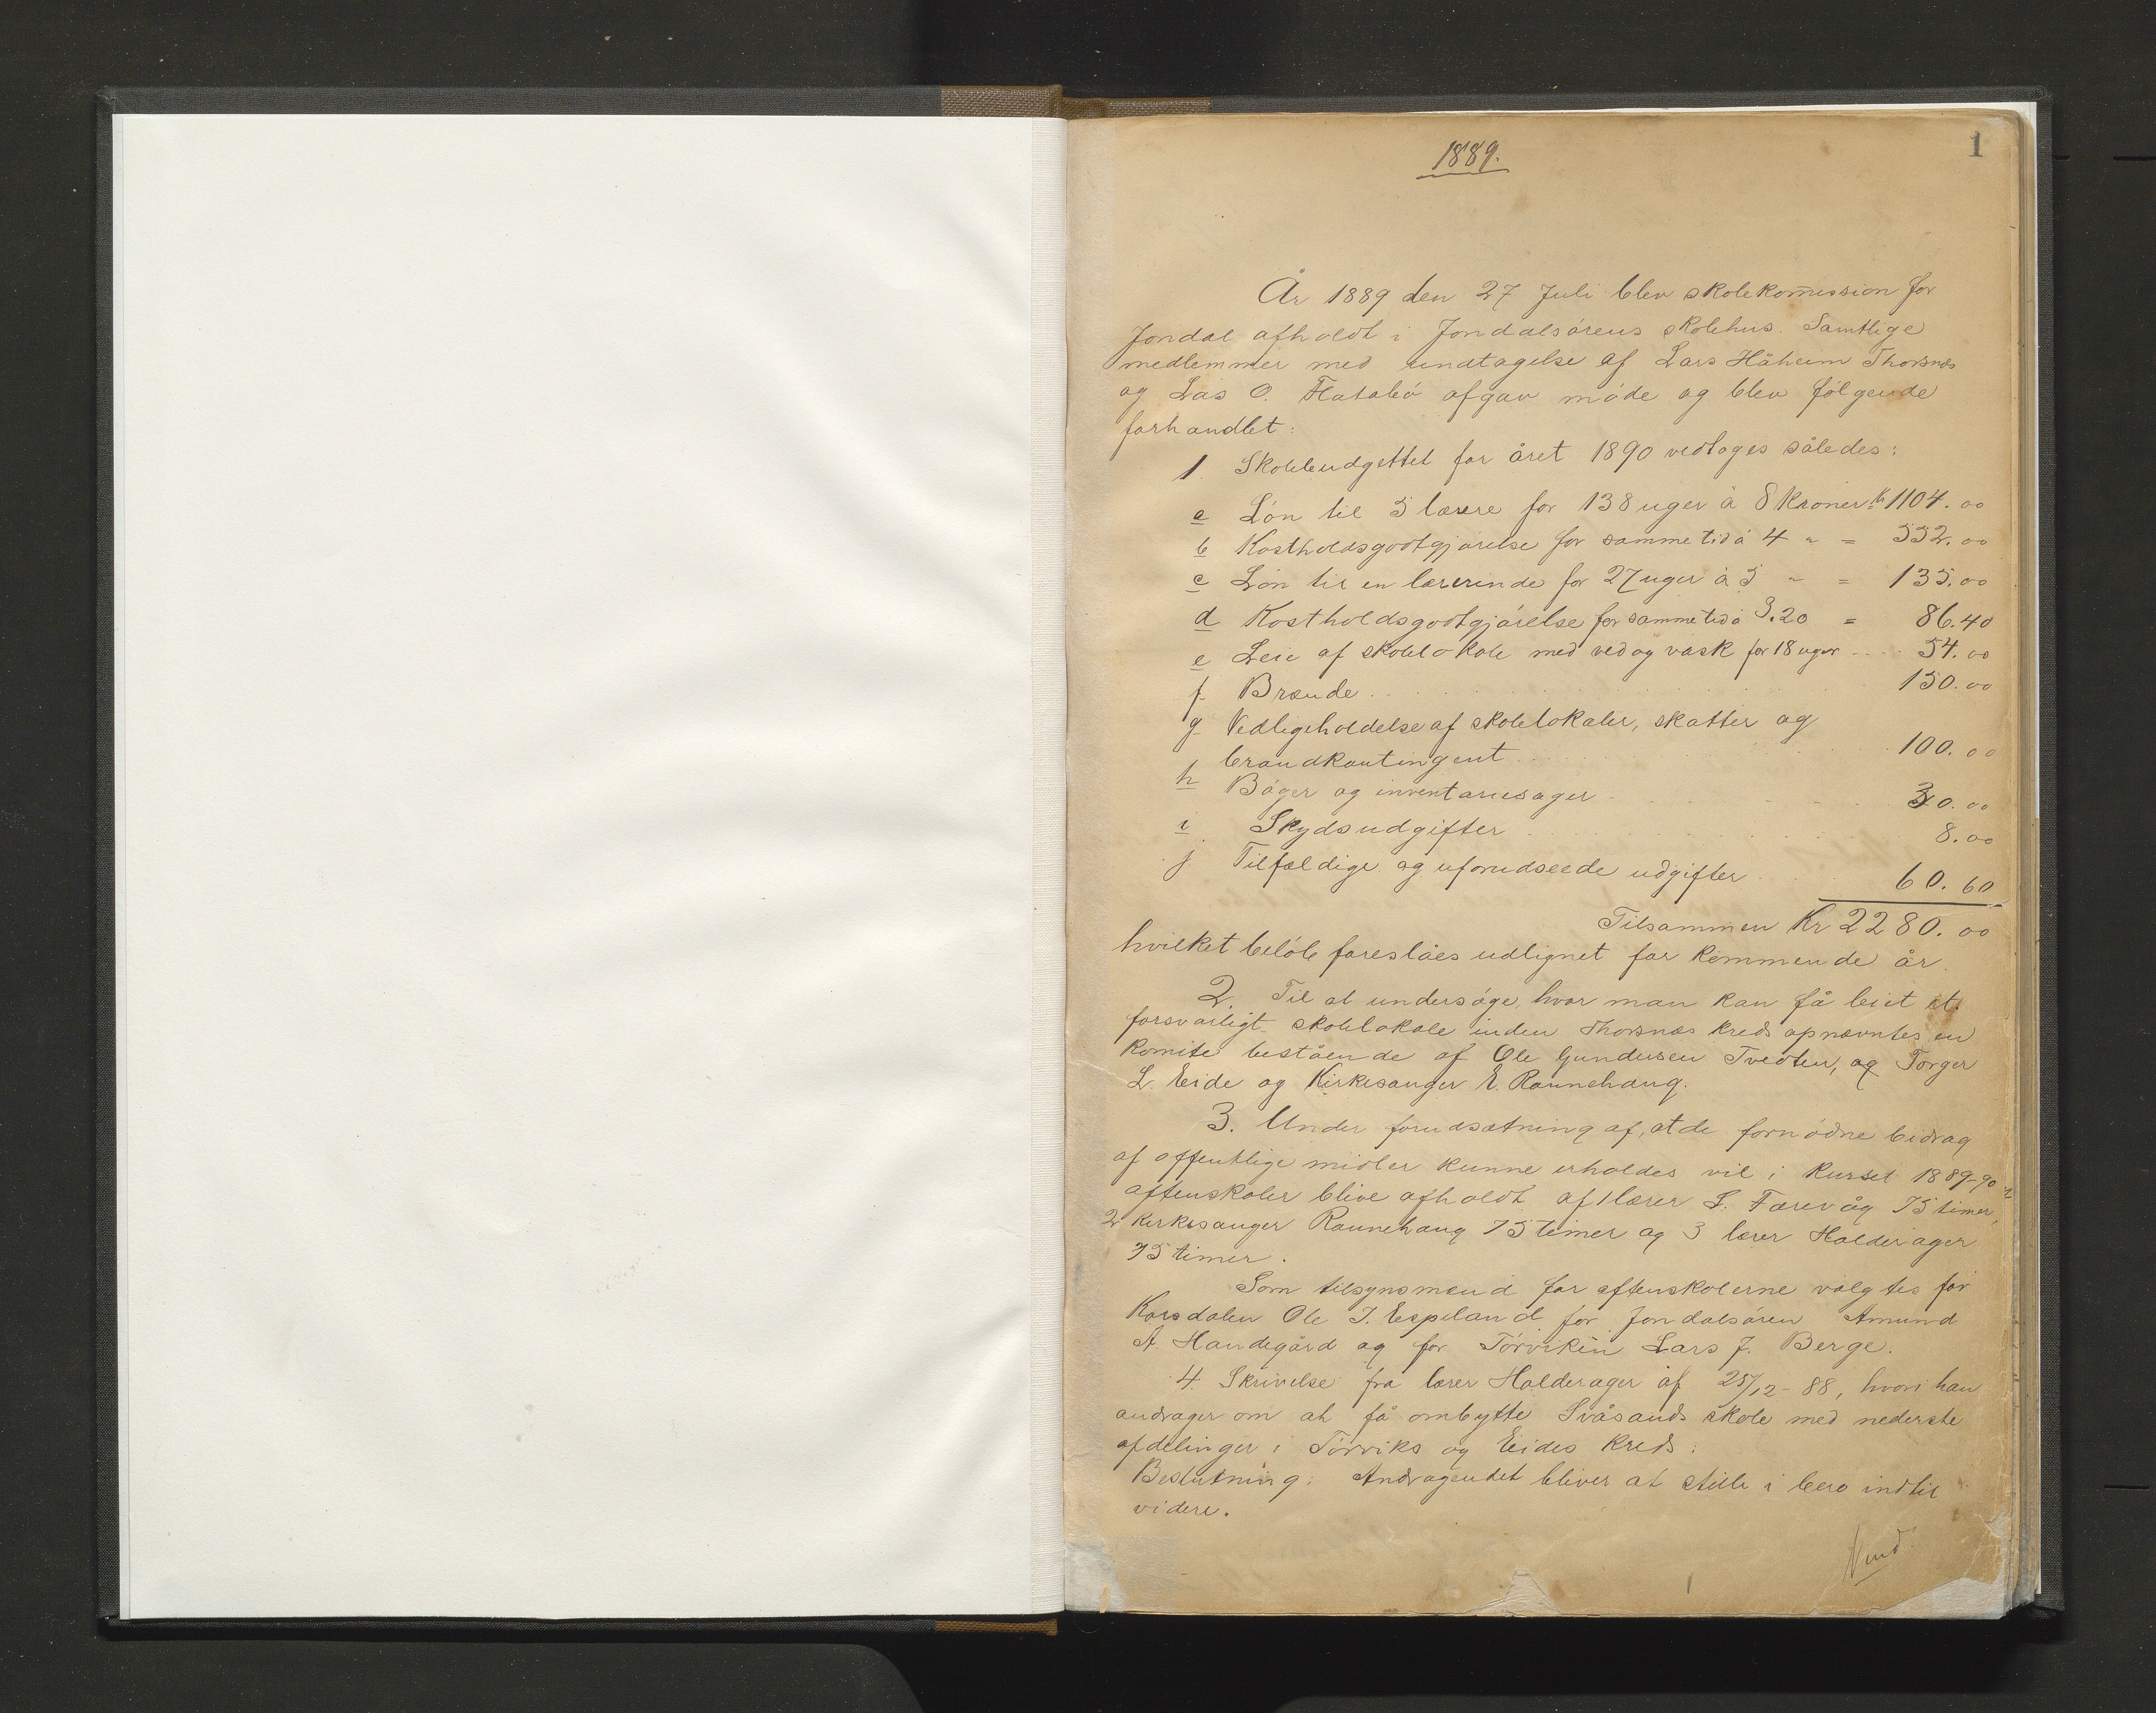 1
1889.
År 1889 den 27 Juli blev skolekommission for
Jondal afholdt i Jondalsörens skolehus. Samtlige
medlemmer med undtagelse af Lars Håheim Thorsnæs
og Lars O. Flatabö afgav möde og blev fölgende
forhandlet:
1. Skolebudgettet for året 1890 vedtoges således:
a Lön til 5 lærere for 138 uger à 8 Kroner Kr 1104.00
b Kostholdsgodtgjörelse for samme tid à 4 " = 552.00
c Lön til en lærerinde for 27 uger à 5 " = 135.00
d Kostholdsgodtgjörelse for samme tid à 3.20 = 86.40
e Leie af skolelokale med ved og vask for 18 uger 54.00
f Brænde 150.00
g Vedligeholdelse af skolelokaler, skatter og
brandkontingent 100.00
h Böger og inventariesager 30.00
i Skydsudgifter 8.00
j Tilfældige og uforudseede udgifter 60.60
Tilsammen Kr 2280.00
hvilket belöb foreslåes udlignet for kommende år.
2. Til at undersöge, hvor man kan få leiet et
forsvarligt skolelokale inden Thorsnæs kreds opnævntes en
komite bestående af Ole Gundersen Tvedten, og Torger
L. Eide og Kirkesanger E. Raunehaug.
3. Under forudsætning af, at de fornödne bidrag
af offentlige midler kunne erholdes vil i kurset 1889-90
aftenskoler blive afholdt af 1 lærer S. Færevåg 75 timer,
2 kirkesanger Raunehaug 75 timer og 3 lærer Halderager
75 timer.
Som tilsynsmænd for aftenskolerne valgtes for
Korsdalen Ole J. Espeland for Jondalsören Amund
A. Handegård og for Törviken Lars J. Berge.
4. Skrivelse fra lærer Halderager af 25/12-88, hvori han
andrager om at få ombytte Svåsands skole med nederste
afdelinger i Törviks og Eides kreds.
Beslutning: Andragendet bliver at stille i bero indtil
videre.
Vend